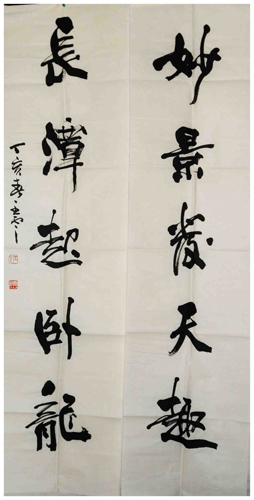 妙景發天趣
長潭起卧龍
丁亥春